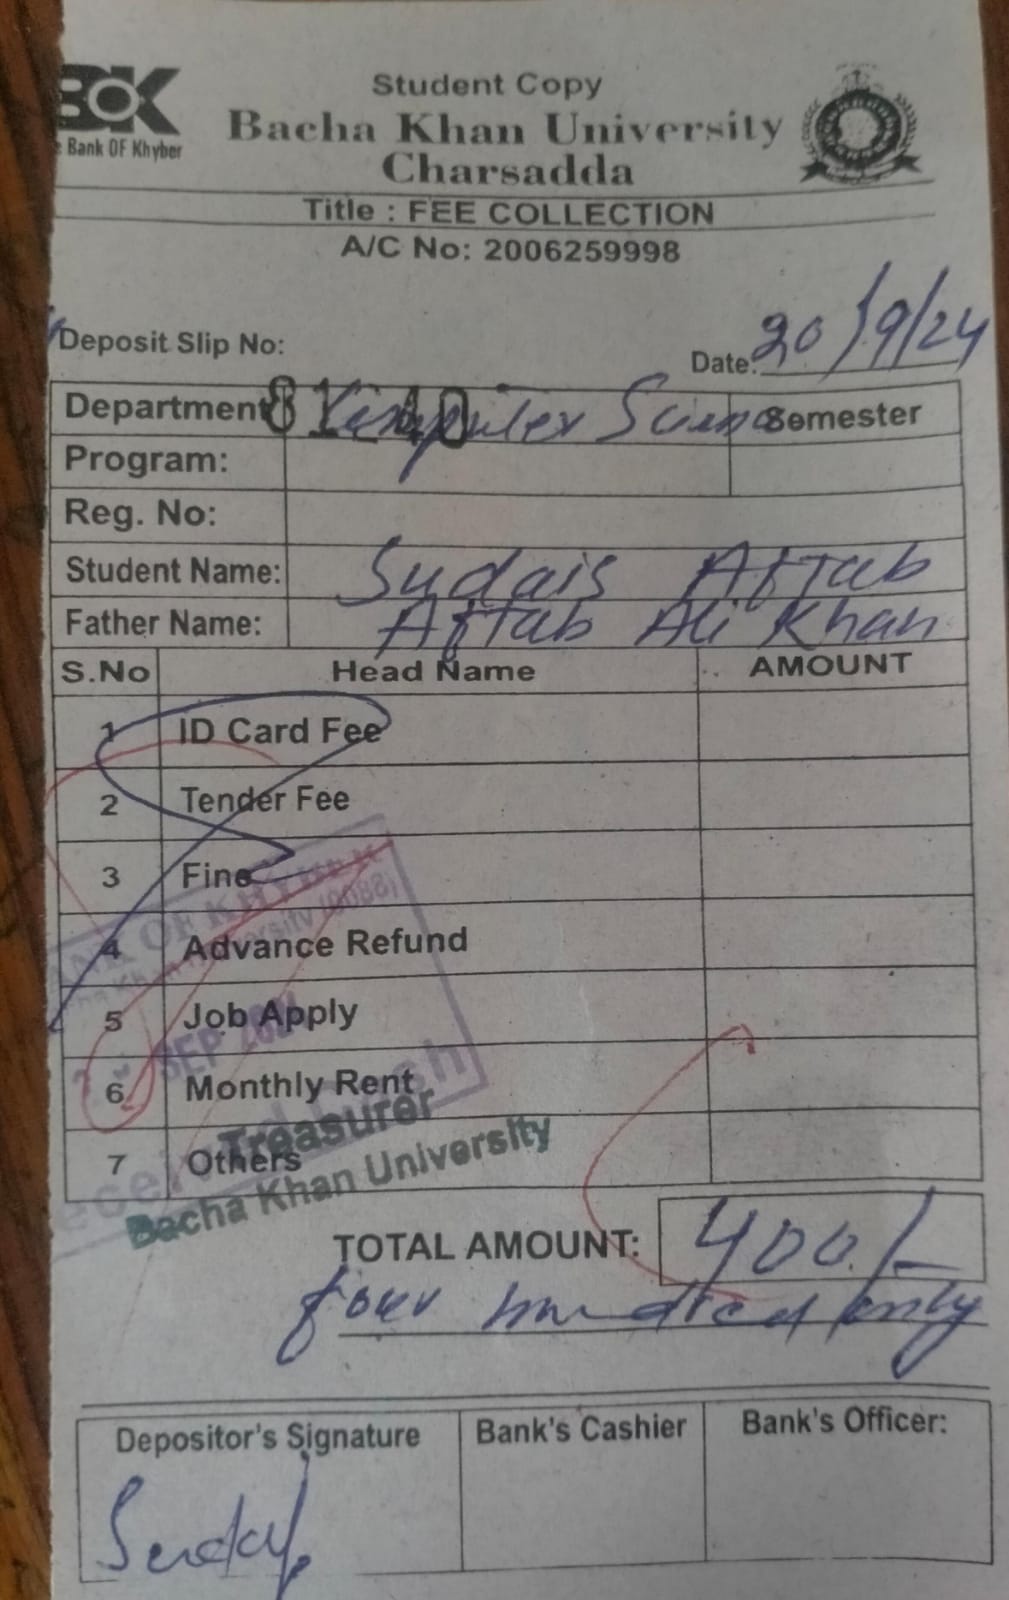 BOK
Bank OF Khyber
Student Copy
Bacha Khan University
Charsadda
Title : FEE COLLECTION
A/C No: 2006259998
Deposit Slip No:
Date: 20/9/24
Department Computer Science Semester
Program:
Reg. No:
Student Name: Sudais Aftab
Father Name: Aftab Ali Khan
S.No Head Name AMOUNT
1 ID Card Fee
2 Tender Fee
3 Fine
4 Advance Refund
5 Job Apply
6 Monthly Rent
7 Others
BANK OF KHYBER
University (0088)
SEP
Treasurer
Bacha Khan University
TOTAL AMOUNT: 400/-
four hundred only
Depositor's Signature Bank's Cashier Bank's Officer: